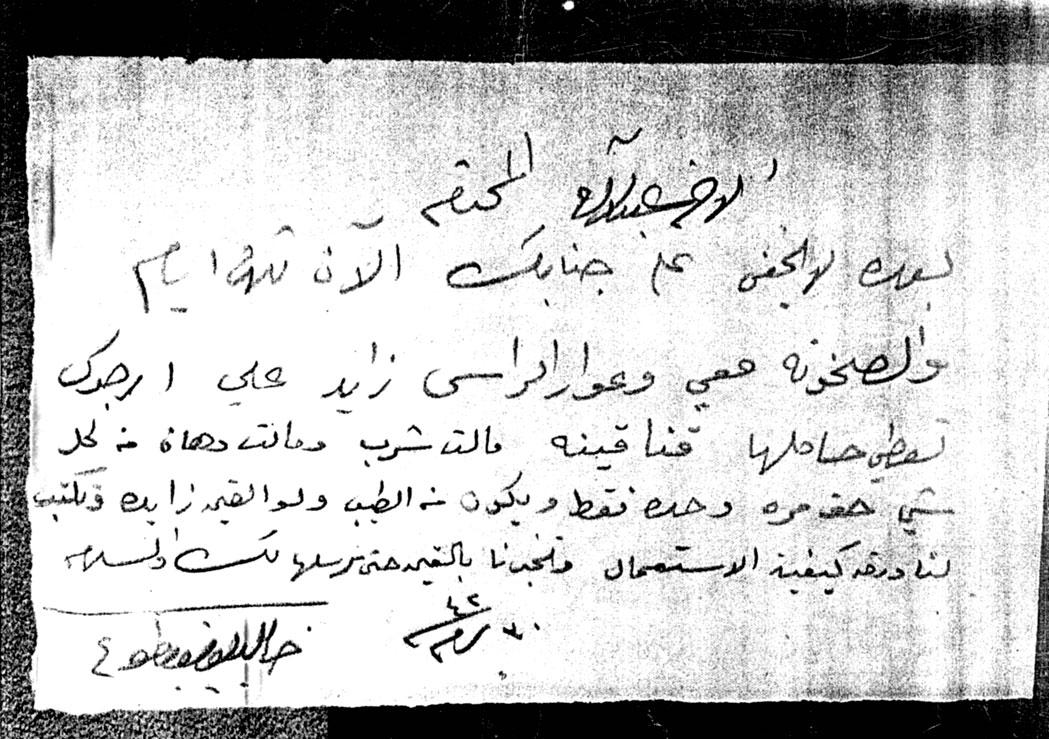 الاخ عبدالله المحترم
بعده لايخفى على جنابك الآن ثلاثة ايام
والصخونه معي وعوار الراس زايد علي ارجوك
تعطي حاملها قناقينه مالت شرب ومالت دهان من كل
شي حق مره وحده فقط ويكون من الطيب ولو القيمه زايده وتكتب
لنا ورقه كيفية الاستعمال وتخبرنا بالقيمه حتى نرسلها لك والسلام
٤٢
٣٠